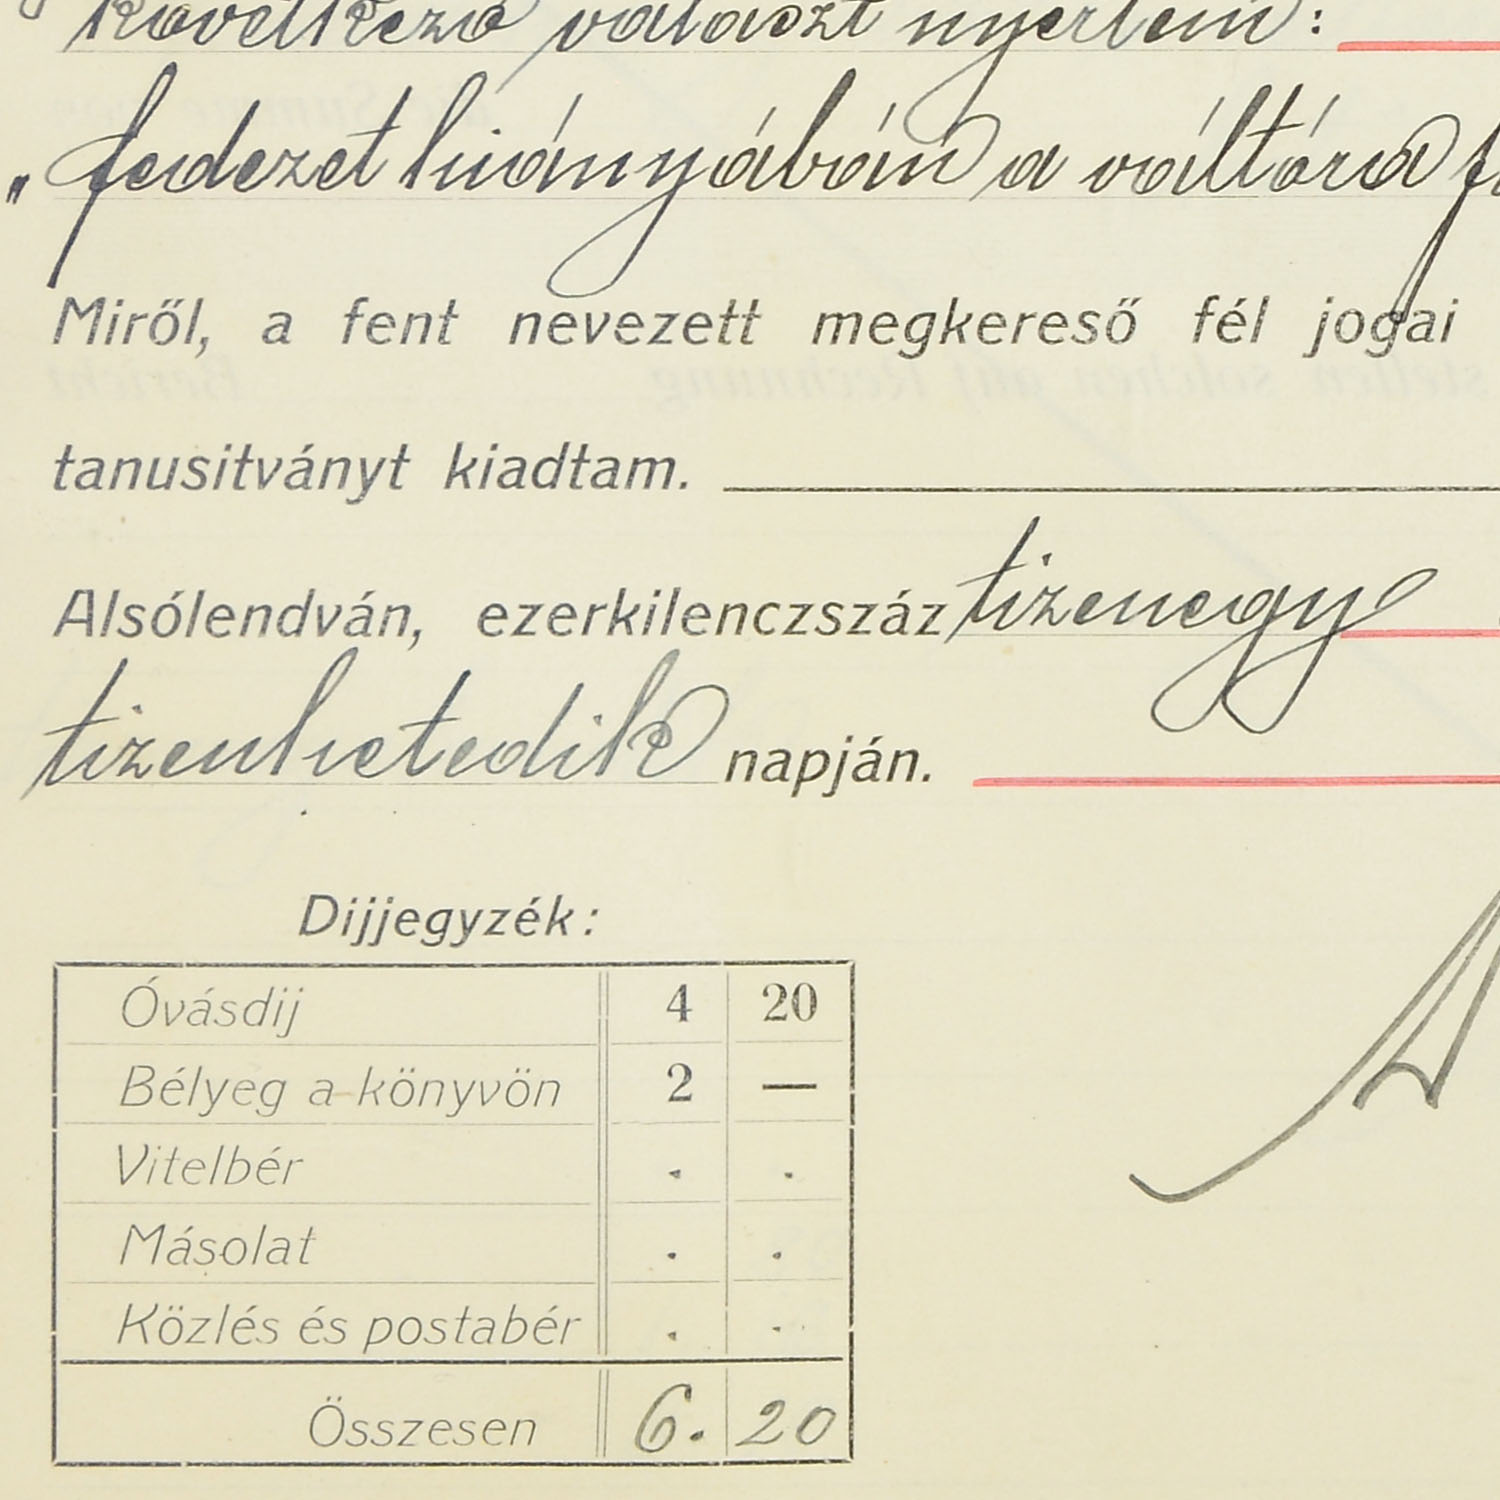 következő választ nyertem:
„fedezet hiányában a váltóra
Miről, a fent nevezett megkereső fél jogai
tanusitványt kiadtam.
Alsólendván, ezerkilenczszáz tizenegy
tizenhetedik napján.
Dijjegyzék:
Óvásdij 4 20
Bélyeg a könyvön 2 —
Vitelbér . .
Másolat . .
Közlés és postabér . .
Összesen 6. 20